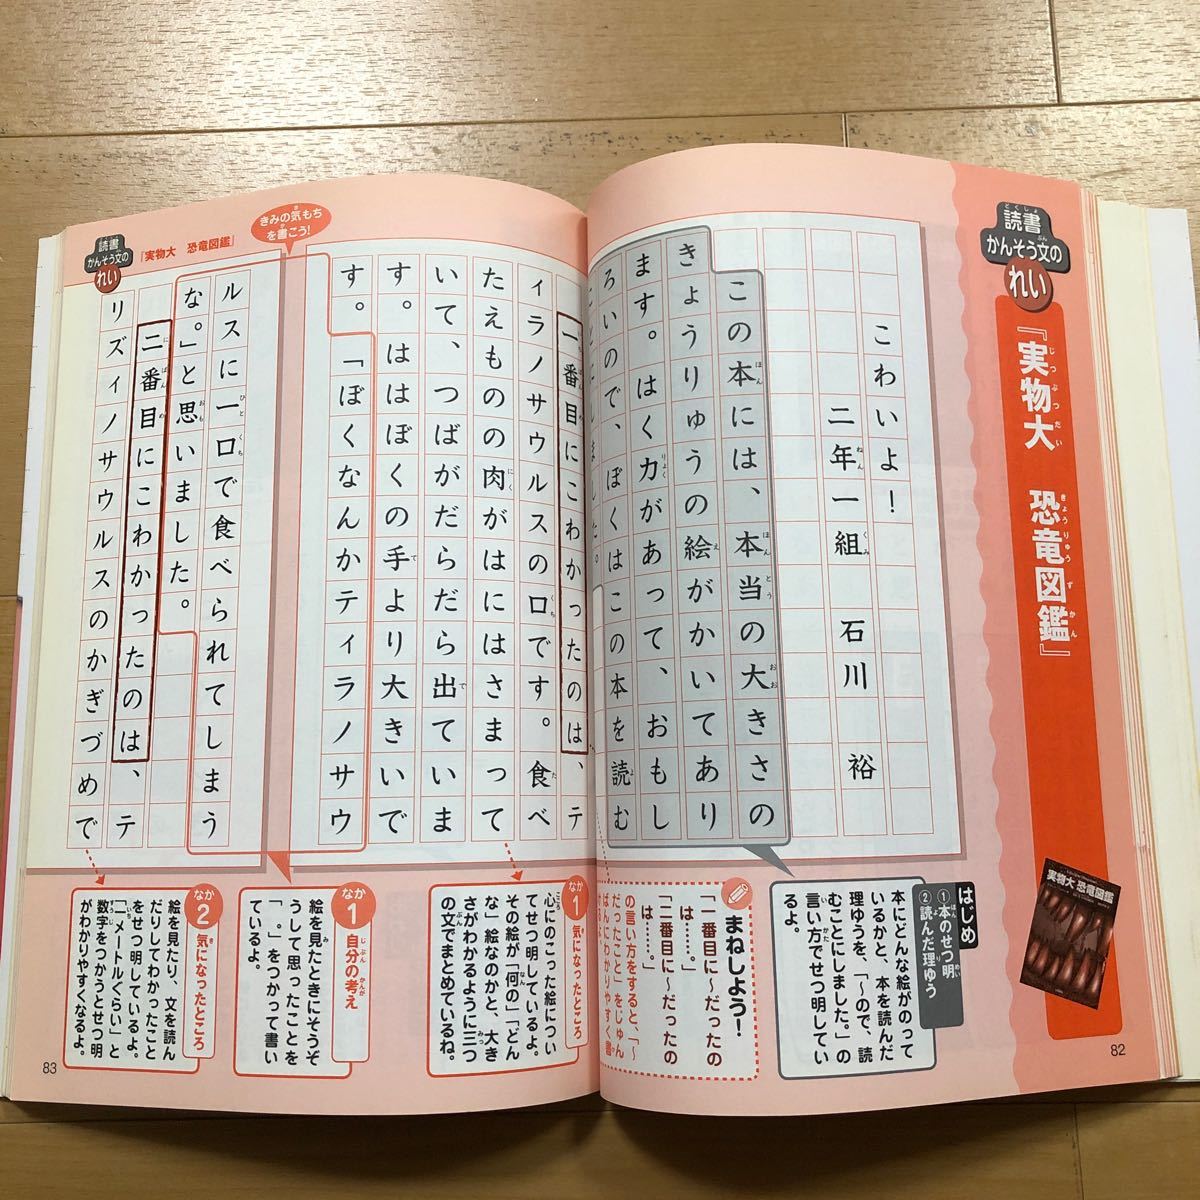 読書
かんそう文の
れい
『実物大 恐竜図鑑』
実物大 恐竜図鑑
こわいよ！
二年一組 石川 裕
この本には、本当の大きさの
きょうりゅうの絵がかいてあり
ます。はく力があって、おもし
ろいので、ぼくはこの本を読む
はじめ
①本のせつ明
②読んだ理ゆう
本にどんな絵がのって
いるかと、本を読んだ
理ゆうを、「～ので、読
むことにしました。」の
言い方でせつ明してい
るよ。
まねしよう！
「一番目に～だったの
は……。」
「二番目に～だったの
は……。」
の言い方をすると、「～
だったこと」をじゅん
ばんにわかりやすく書
82
読書
かんそう文の
れい
『実物大 恐竜図鑑』
きみの気もち
を書こう！
一番目にこわかったのは、テ
ィラノサウルスの口です。食べ
たえものの肉がはにはさまって
いて、つばがだらだら出ていま
す。ははぼくの手より大きいで
す。「ぼくなんかティラノサウ
ルスに一口で食べられてしまう
な。」と思いました。
二番目にこわかったのは、テ
リズィノサウルスのかぎづめで
なか1 気になったところ
心にのこった絵につい
てせつ明しているよ。
その絵が「何の」「どん
な」絵なのかと、大き
さがわかるように三つ
の文でまとめているね。
なか1 自分の考え
絵を見たときにそうぞ
うして思ったことを
「 。」をつかって書い
ているよ。
なか2 気になったところ
絵を見たり、文を読ん
だりしてわかったこと
をせつ明しているよ。
「一メートルくらい」と
数字をつかうとせつ明
がわかりやすくなるよ。
83